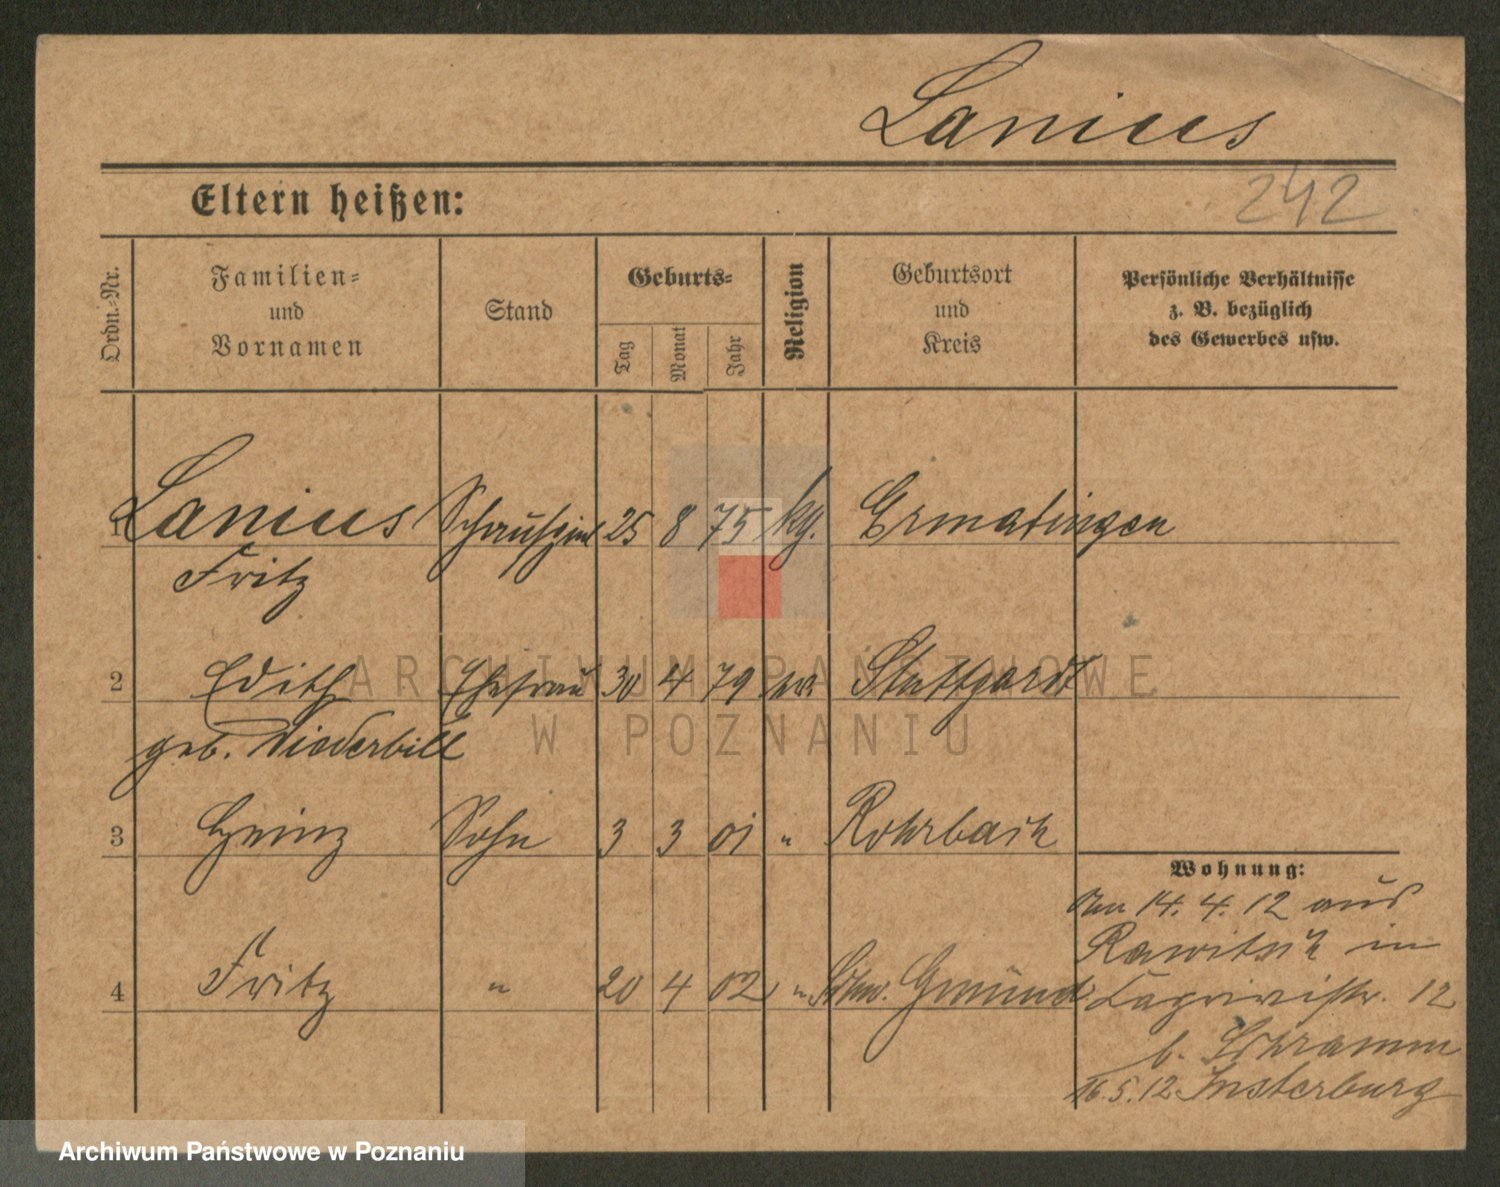 Lanius
Eltern heißen:
242
Ordn.-Nr.
Familien-
und
Vornamen
Stand
Geburts-
Tag
Monat
Jahr
Religion
Geburtsort
und
Kreis
Persönliche Verhältnisse
z. B. bezüglich
des Gewerbes usw.
1 Lanius 25 8 75 Ermatingen
Fritz
2 Edith Ehefrau 30 4 79 Stuttgardt
geb. Niederbill
3 Heinz Sohn 3 3 01 " Rohrbach
Wohnung:
Am 14. 4. 12 aus
Rawitsch in
4 Fritz " 20 4 02 " Schw. Gmünd
Caprivistr. 12
b. Schramm
16.5.12. Insterburg
ARCHIWUM PAŃSTWOWE
W POZNANIU
Archiwum Państwowe w Poznaniu